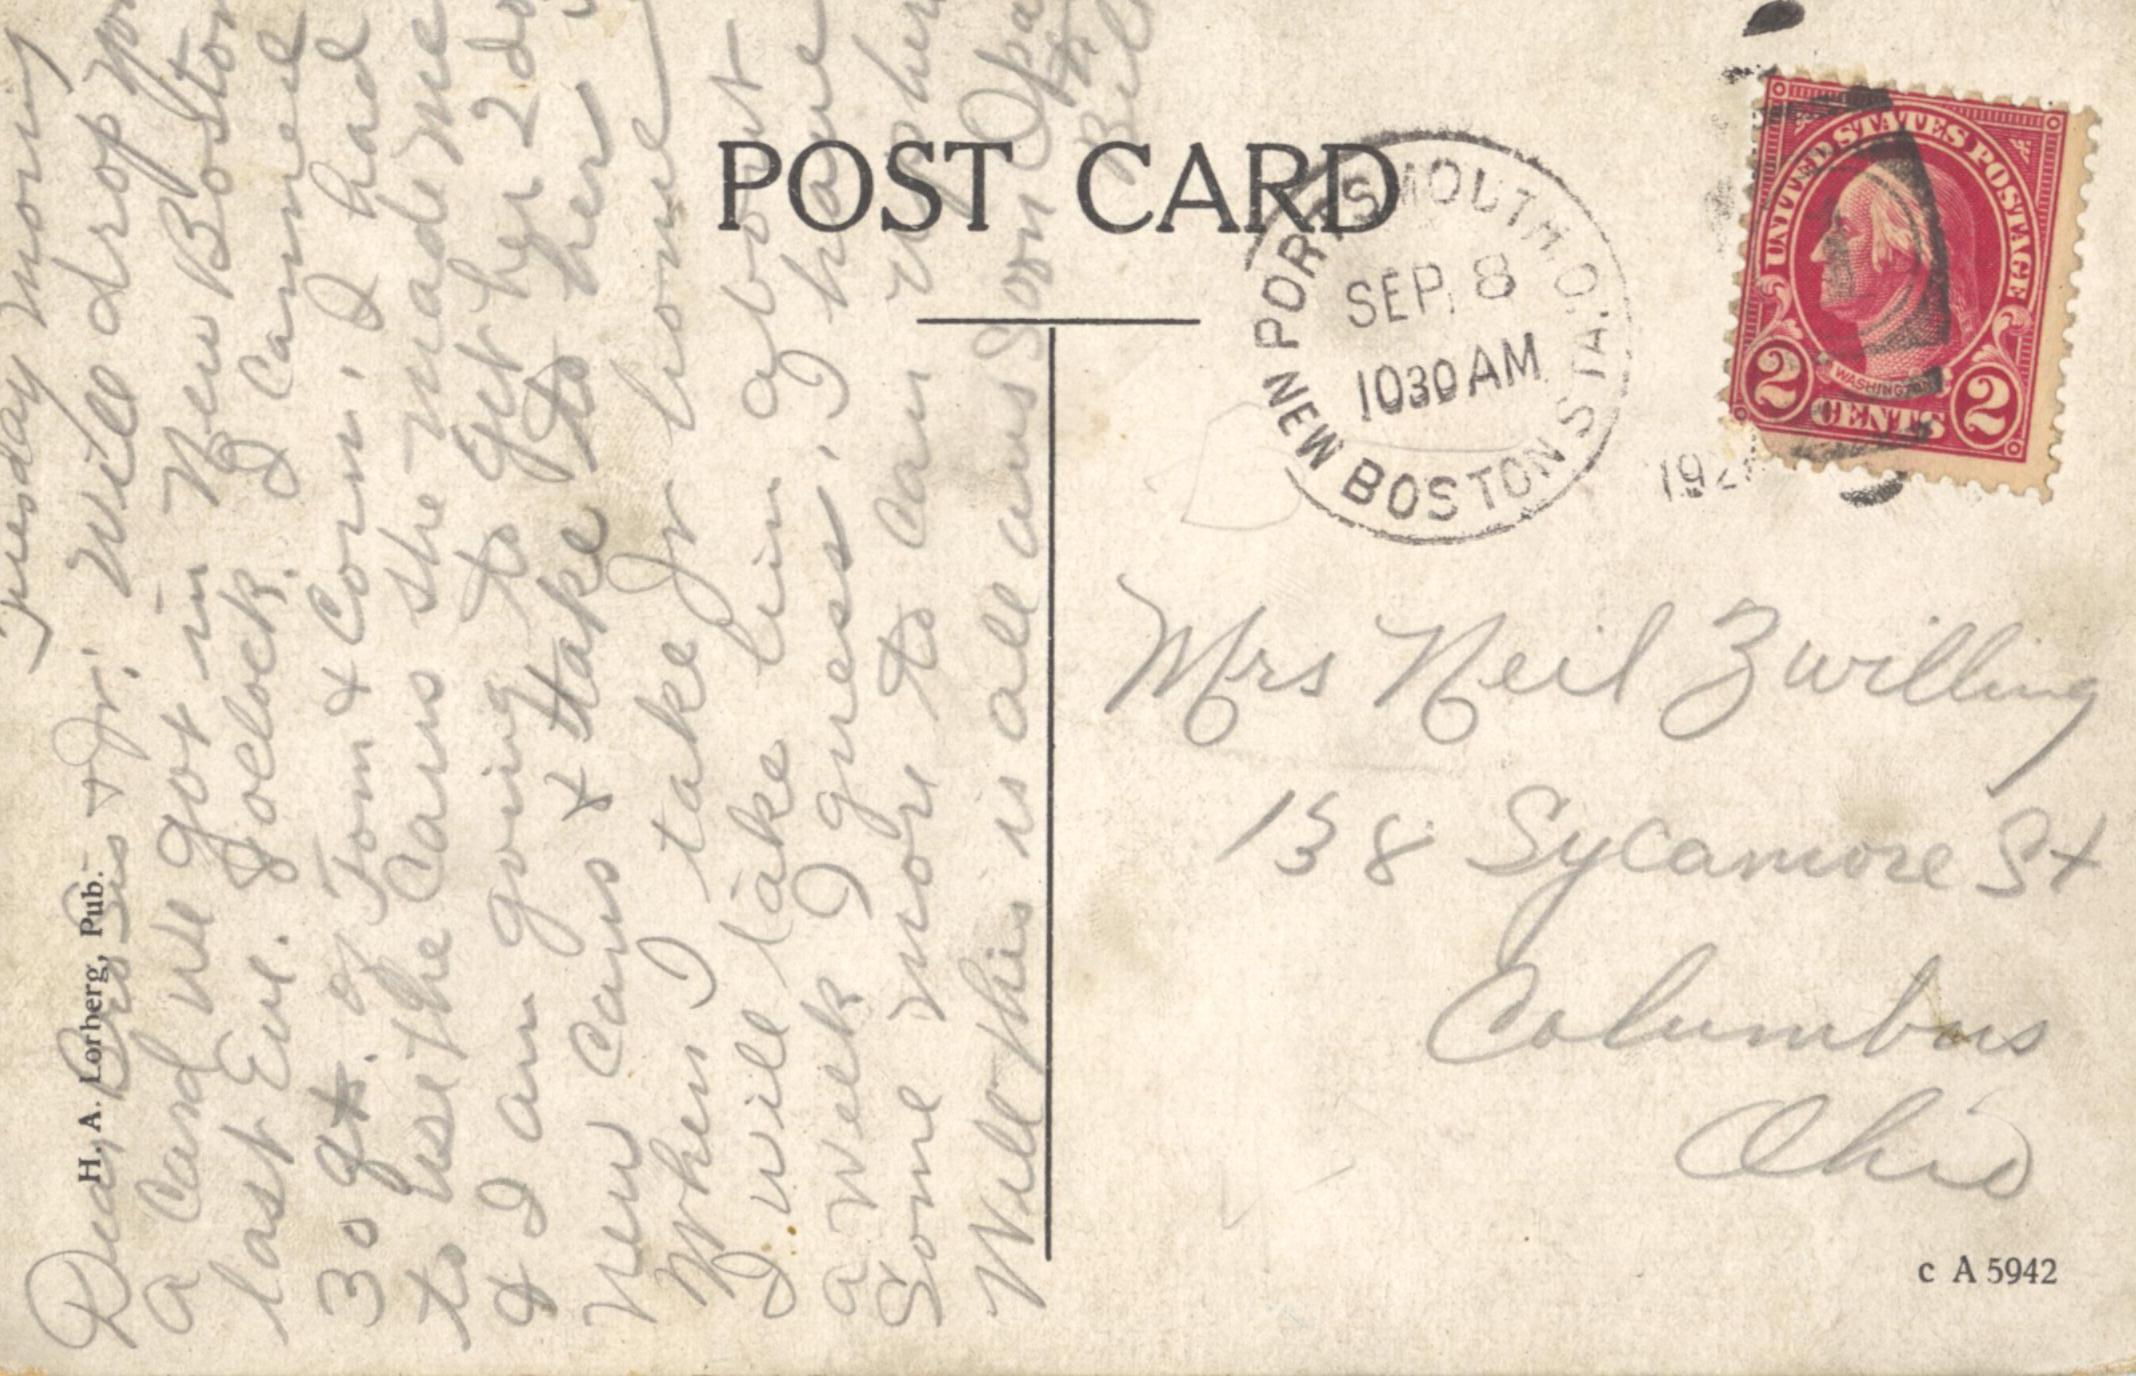 Tuesday morning
Dear Sis & Jr. Will drop you
a card we got in New Boston
last Eve. 7 oclock. I canned
30 qt. of Tom & Corn. I had
to use the cans she made me
& I am going to get her 2 do
new cans & take to her
when I take Jr home
I will take him about
a week I guess. I have
some more to can up here
Well this is all ans soon Opal
& Bill
POST CARD
H. A. Lorberg, Pub.
PORTSMOUTH O.
NEW BOSTON STA.
SEP 8
1030 AM
192
UNITED STATES POSTAGE
WASHINGTON
2 CENTS 2
Mrs Neil Zwilling
138 Sycamore St
Columbus
Ohio
c A 5942